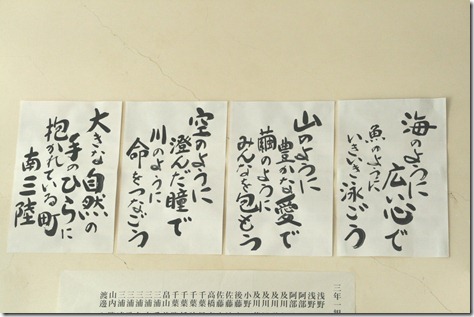 海のように
広い心で
魚のように
いきいき泳ごう
山のように
豊かな愛で
繭のように
みんなを包もう
空のように
澄んだ瞳で
川のように
命をつなごう
大きな自然の
手のひらに
抱かれている町
南三陸
三年一
浅野
浅野
阿部
阿部
及川
及川
及川
小野
後藤
佐藤
佐藤
高橋
千葉
千葉
千葉
畠山
三浦
三浦
三浦
山内
渡邊